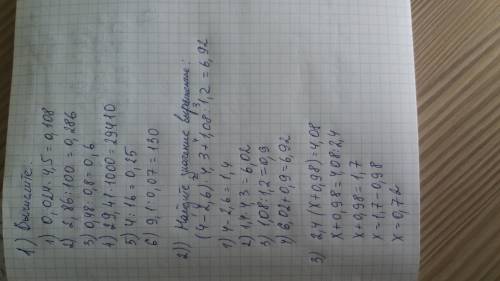 1) Вычислите:
1) 0,024·4,5=0,108
2) 2,86:100=0,286
3) 0,48:0,8=0,6
4) 29,41·1000=29410
5) 4:16=0,25
6) 9,1:0,07=130
2)) Найдите значение выражения:
(4-2,6)·4,3+1,08:1,2=6,92
1) 4-2,6=1,4
2) 1,4·4,3=6,02
3) 1,08:1,2=0,9
4) 6,02+0,9=6,92
3) 2,4(x+0,98)=4,08
x+0,98=4,08:2,4
x+0,98=1,7
x=1,7-0,98
x=0,72